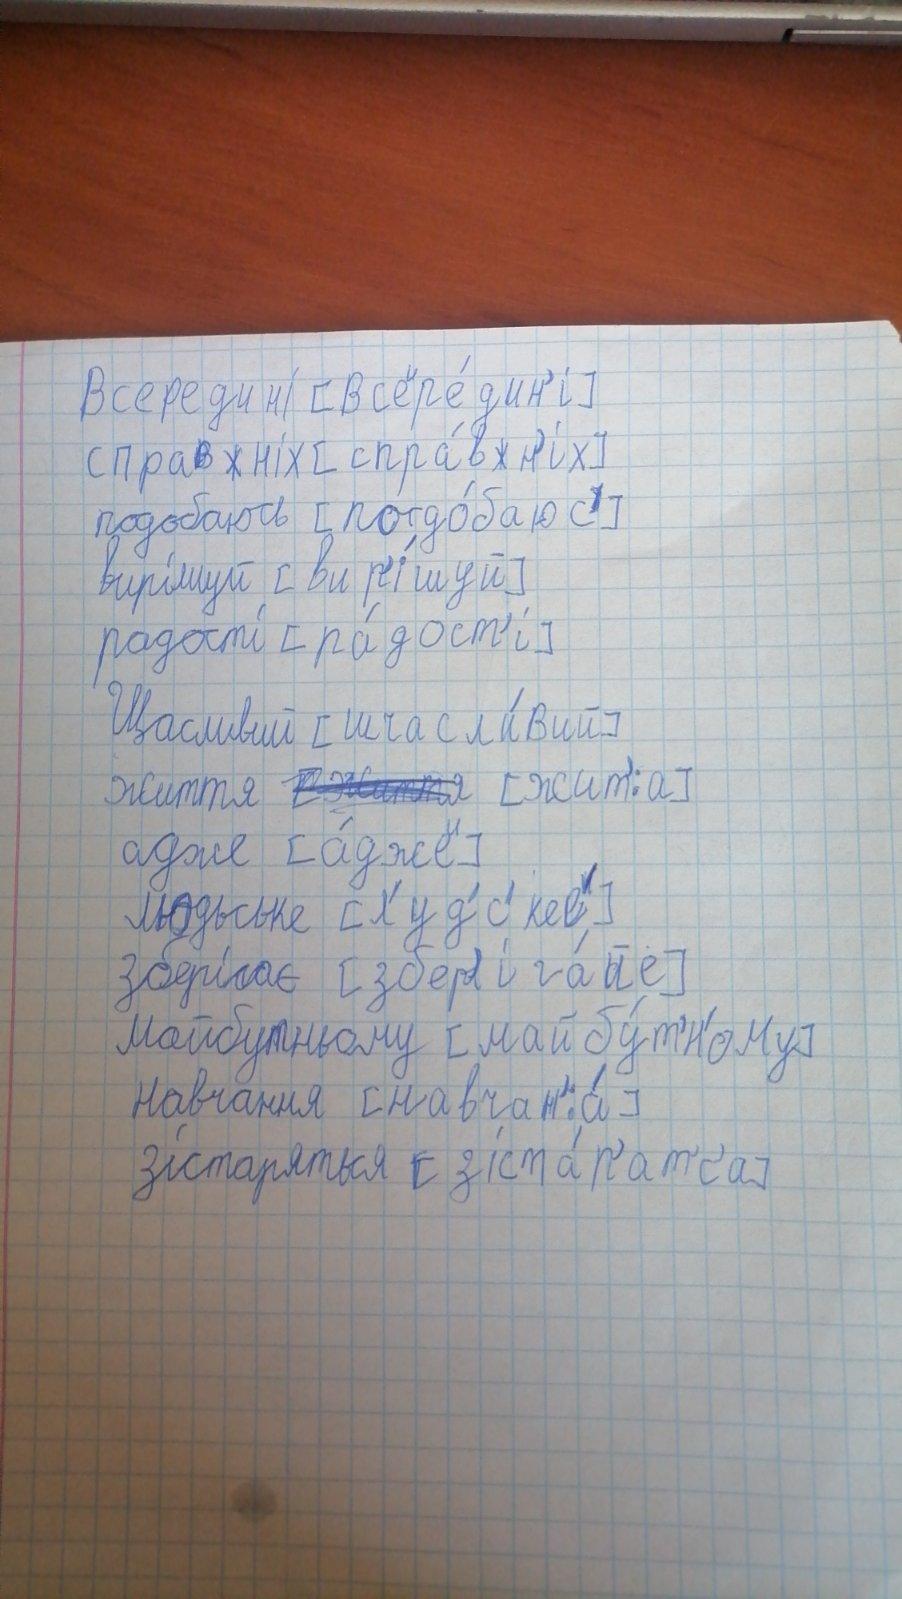 Всередині [всеире́дин'і]
справжніх [спра́вжн'іх]
подобаюсь [подо́баюс']
вирішуй [вир'і́шуй]
радості [ра́дост'і]
Щасливий [шчасли́вий]
життя [жит':а]
адже [а́джеи]
людьське [л'уд'с'ке]
зберігає [збер'іга́йе]
майбутньому [майбу́т'н'ому]
навчання [навчан':а́]
зістаряться [зіста́р'ат'с'а]